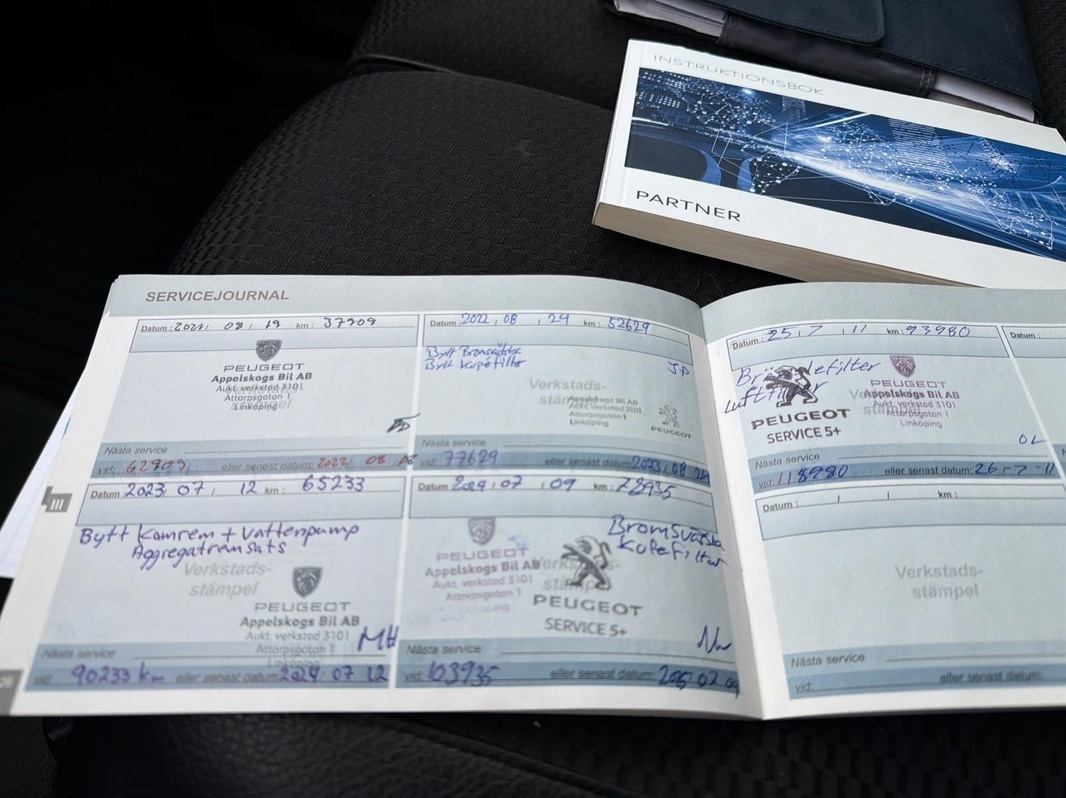 INSTRUKTIONSBOK
PARTNER
SERVICEJOURNAL
Datum: 2021 08 19 km: 37909
PEUGEOT
Appelskogs Bil AB
Aukt. verkstad 3101
Attorpsgatan 1
Linköping
Nästa service
vid: 62909 eller senast datum: 2022 08
Datum: 2022 08 24 km: 52629
Bytt Bromsvätska
Bytt kupéfilter
JP
Verkstads-
stämpel
Appelskogs Bil AB
Aukt. verkstad 3101
Attorpsgatan 1
Linköping
PEUGEOT
Nästa service
vid: 77629 eller senast datum: 2023 08
Datum: 2023 07 12 km: 65233
Bytt Kamrem + Vattenpump
Aggregatremsats
Verkstads-
stämpel
PEUGEOT
Appelskogs Bil AB
Aukt. verkstad 3101
Attorpsgatan 1
Linköping
MH
Nästa service
vid: 90233 km eller senast datum: 2024 07 12
Datum: 2024 07 09 km: 78935
Bromsvätska
Kupefilter
Verkstads-
stämpel
PEUGEOT
Appelskogs Bil AB
Aukt. verkstad 3101
Attorpsgatan 1
PEUGEOT
SERVICE 5+
Nästa service
vid: 103935 eller senast datum: 07 09
Datum: 25 7 11 km: 93980
Bränslefilter
Luftfilter
PEUGEOT
SERVICE 5+
PEUGEOT
Appelskogs Bil AB
Aukt. verkstad 3101
Attorpsgatan 1
Linköping
OL
Nästa service
vid: 118980 eller senast datum: 26-7-11
Datum: / / km:
Verkstads-
stämpel
Nästa service
vid: eller senast datum:
Datum: